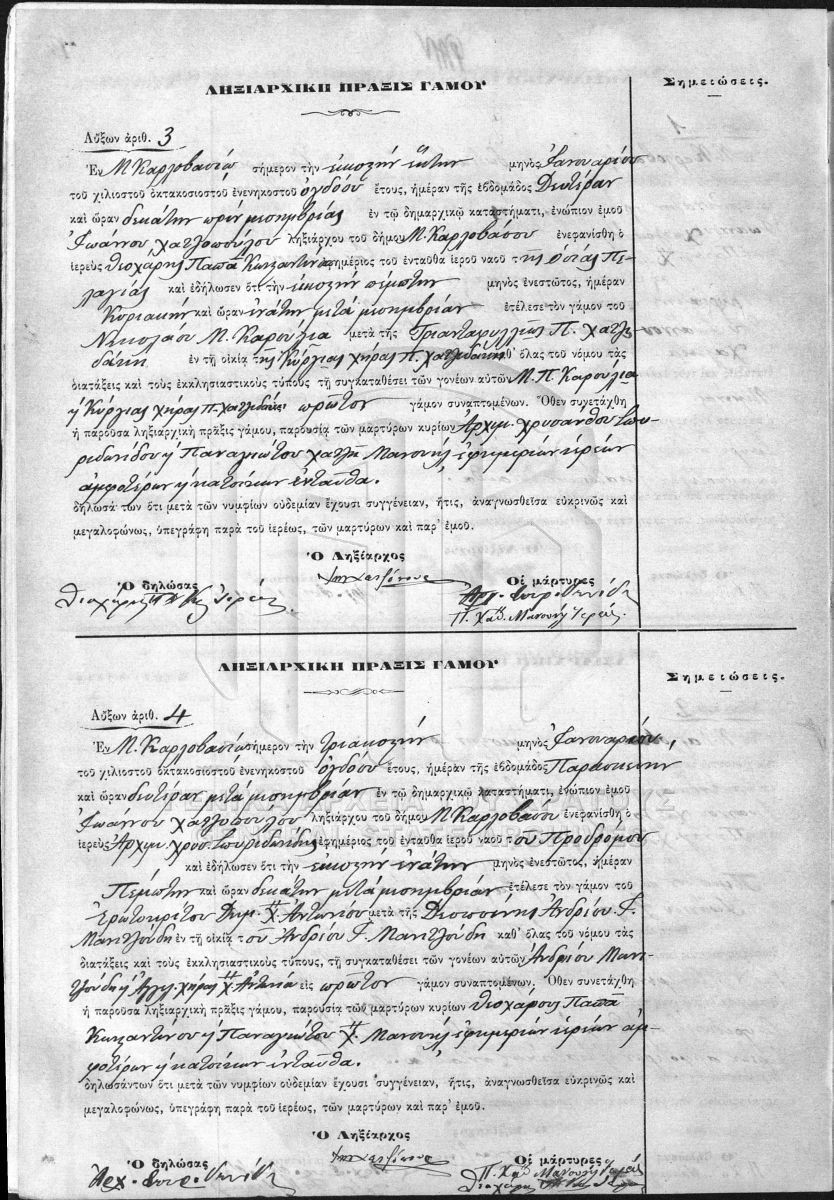 ΛΗΞΙΑΡΧΙΚΗ ΠΡΑΞΙΣ ΓΑΜΟΥ
Σημειώσεις.
Αὔξων ἀριθ. 3
Ἐν Μ. Καρλοβασίῳ σήμερον τὴν εἰκοστὴν ἕκτην μηνὸς Ἰανουαρίου
τοῦ χιλιοστοῦ ὀκτακοσιοστοῦ ἐνενηκοστοῦ ὀγδόου ἔτους, ἡμέραν τῆς ἑβδομάδος Δευτέραν
καὶ ὥραν δεκάτην πρὶν μεσημβρίας ἐν τῷ δημαρχικῷ καταστήματι, ἐνώπιον ἐμοῦ
Ἰωάννου Χατζοπούλου ληξιάρχου τοῦ δήμου Μ. Καρλοβάσου ἐνεφανίσθη ὁ
ἱερεὺς Θεοχάρης Παπᾶ Κωνσταντίνου ἐφημέριος τοῦ ἐνταῦθα ἱεροῦ ναοῦ τῆς ὁσίας Πε-
λαγίας καὶ ἐδήλωσεν ὅτι τὴν εἰκοστὴν πέμπτην μηνὸς ἐνεστῶτος, ἡμέραν
Κυριακὴν καὶ ὥραν ἐνάτην μετὰ μεσημβρίαν ἐτέλεσε τὸν γάμον τοῦ
Νικολάου Μ. Καρούλια μετὰ τῆς Τριανταφυλλιᾶς Π. Χατζι-
δάκη ἐν τῇ οἰκίᾳ τῆς χήρας Π. Χατζιδάκη καθ' ὅλας τοῦ νόμου τὰς
διατάξεις καὶ τοὺς ἐκκλησιαστικοὺς τύπους τῇ συγκαταθέσει τῶν γονέων αὐτῶν Μ. Π. Καρούλια
χήρας Π. Χατζιδάκη πρῶτον γάμον συναπτομένων. Ὅθεν συνετάχθη
ἡ παροῦσα ληξιαρχικὴ πρᾶξις γάμου, παρουσίᾳ τῶν μαρτύρων κυρίων Ἀρχιμ. Χρυσάνθου Σπυ-
ριδωνίδου ἢ Παναγιώτου Χατζῆ Μανουὴλ ἐφημερίων ἱερέων
ἀμφοτέρων ἢ κατοίκων ἐνταῦθα.
δηλωσάντων ὅτι μετὰ τῶν νυμφίων οὐδεμίαν ἔχουσι συγγένειαν, ἥτις, ἀναγνωσθεῖσα εὐκρινῶς καὶ
μεγαλοφώνως, ὑπεγράφη παρὰ τοῦ ἱερέως, τῶν μαρτύρων καὶ παρ' ἐμοῦ.
Ὁ Ληξίαρχος
Ὁ δηλώσας
Οἱ μάρτυρες
Π. Χα. Μανουὴλ Ἱερεύς.
ΛΗΞΙΑΡΧΙΚΗ ΠΡΑΞΙΣ ΓΑΜΟΥ
Σημειώσεις.
Αὔξων ἀριθ. 4
Ἐν Μ. Καρλοβασίῳ σήμερον τὴν τριακοστὴν μηνὸς Ἰανουαρίου,
τοῦ χιλιοστοῦ ὀκτακοσιοστοῦ ἐνενηκοστοῦ ὀγδόου ἔτους, ἡμέραν τῆς ἑβδομάδος Παρασκευὴν
καὶ ὥραν δευτέραν μετὰ μεσημβρίαν ἐν τῷ δημαρχικῷ καταστήματι, ἐνώπιον ἐμοῦ
Ἰωάννου Χατζοπούλου ληξιάρχου τοῦ δήμου Μ. Καρλοβάσου ἐνεφανίσθη ὁ
ἱερεὺς Ἀρχιμ. Χρυσ. Σπυριδωνίδης ἐφημέριος τοῦ ἐνταῦθα ἱεροῦ ναοῦ τοῦ Προδρόμου
καὶ ἐδήλωσεν ὅτι τὴν εἰκοστὴν ἐνάτην μηνὸς ἐνεστῶτος, ἡμέραν
Πέμπτην καὶ ὥραν δεκάτην μετὰ μεσημβρίαν ἐτέλεσε τὸν γάμον τοῦ
Ἐρωτοκρίτου Δημ. Χ. Ἀντωνίου μετὰ τῆς Δεσποίνης Ἀνδρέου Γ.
Μαντζούδη ἐν τῇ οἰκίᾳ τοῦ Ἀνδρέου Γ. Μαντζούδη καθ' ὅλας τοῦ νόμου τὰς
διατάξεις καὶ τοὺς ἐκκλησιαστικοὺς τύπους, τῇ συγκαταθέσει τῶν γονέων αὐτῶν Ἀνδρέου Μαν-
τζούδη χήρας Χ. εἰς πρῶτον γάμον συναπτομένων. Ὅθεν συνετάχθη
ἡ παροῦσα ληξιαρχικὴ πρᾶξις γάμου, παρουσίᾳ τῶν μαρτύρων κυρίων Θεοχάρους Παπᾶ
Κωνσταντίνου ἢ Παναγιώτου Χ. Μανουὴλ ἐφημερίων ἱερέων ἀμ-
φοτέρων ἢ κατοίκων ἐνταῦθα.
δηλωσάντων ὅτι μετὰ τῶν νυμφίων οὐδεμίαν ἔχουσι συγγένειαν, ἥτις, ἀναγνωσθεῖσα εὐκρινῶς καὶ
μεγαλοφώνως, ὑπεγράφη παρὰ τοῦ ἱερέως, τῶν μαρτύρων καὶ παρ' ἐμοῦ.
Ὁ Ληξίαρχος
Ὁ δηλώσας
Οἱ μάρτυρες
Π. Χα. Μανουὴλ Ἱερεύς